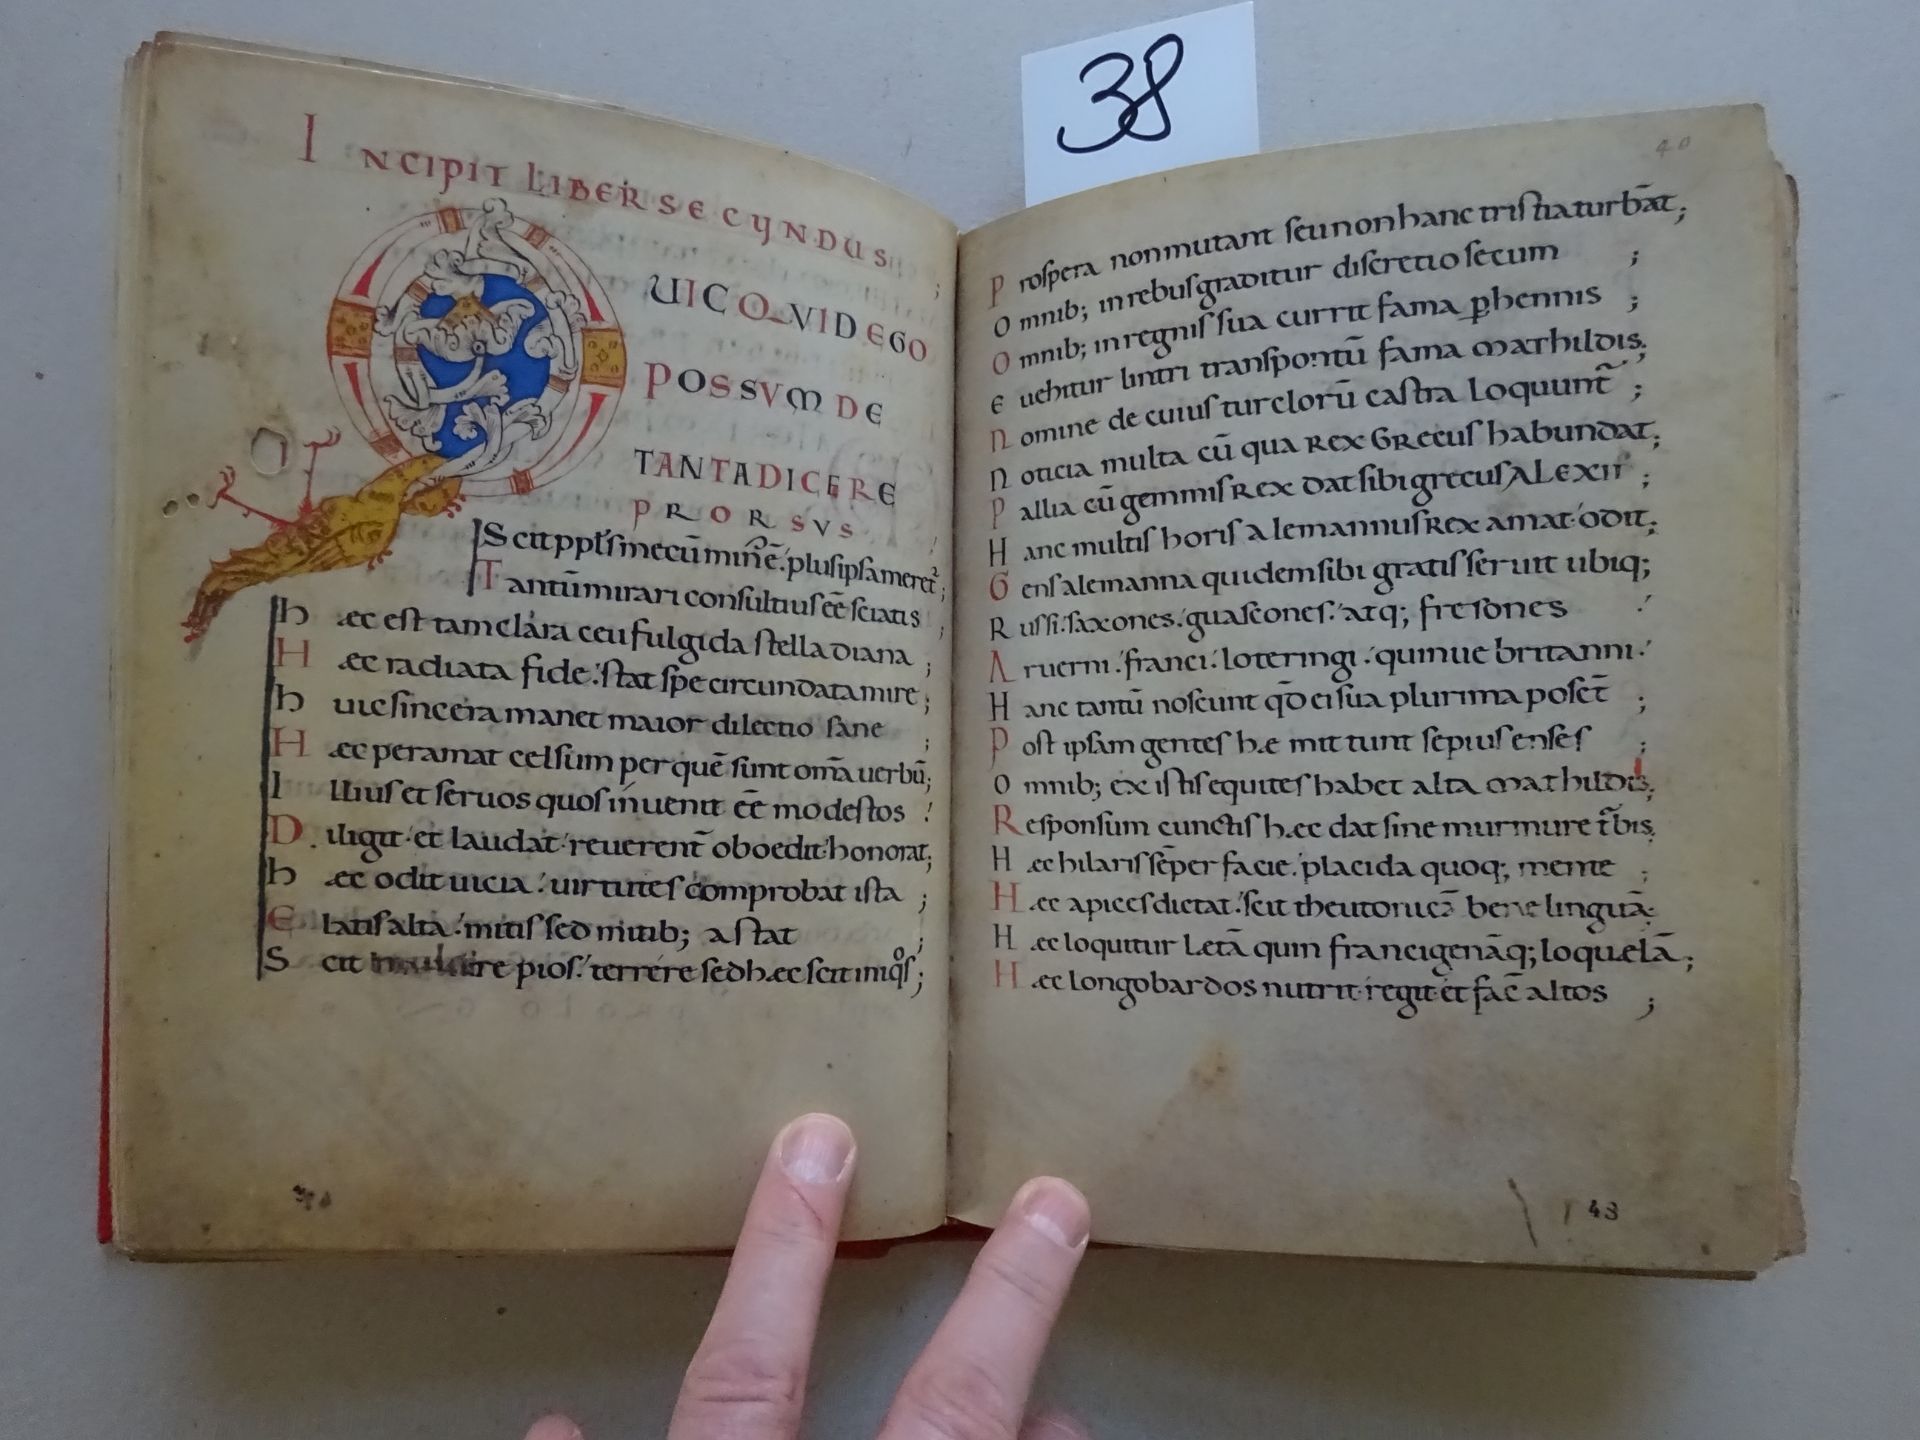 38
INCIPIT LIBER SECVNDUS;
QUICQVID EGO
POSSVM DE
TANTA DICERE
PRORSVS
Scit ppłs mecū
Tantū mirari consultius eē sciatis;
hæc est tam clara ceu fulgida stella diana;
Hæc radiata fide. stat spe circundata mire;
huic sincera manet maior dilectio sane;
Hæc peramat celsum per quē sunt om̄a uerbū;
Illius et seruos quos inuenit eē modestos
Diligit et laudat reuerent̄ oboedit honorat;
hæc odit uicia. uirtutes comprobat ista;
Elatis alta. mitis sed mitib; astat;
Scit pios. terrere sed hæc scit iniqos;
40
Prospera non mutant seu non hanc tristia turbāt;
Omnib; in rebus graditur discretio secum;
Omnib; in regnis sua currit fama phennis;
Euehitur lintri transpontū fama mathildis;
Nomine de cuius turclorū castra loquunt̄;
Noticia multa cū qua rex Grecus habundat;
Pallia cū gemmis rex dat sibi grecus Alexii;
Hanc multis horis alemannus rex amat odit;
Gens alemanna quidem sibi gratis seruit ubiq;
Russi. saxones. guascones. atq; fresones
Aruerni. franci. loteringi. quinue britanni.
Hanc tantū noscunt qd̄ ei sua plurima poscт̄;
Post ipsam gentes hæc mittunt sepius enses;
Omnib; ex istis equites habet alta mathildis;
Responsum cunctis hæc dat sine murmure
Hæc hilaris sēper facie. placida quoq; mente;
Hæc apices dictat. scit theutonicā bene linguā;
Hæc loquitur letā quin francigenāq; loquelā;
Hæc longobardos nutrit regit et fac̄ altos;
43